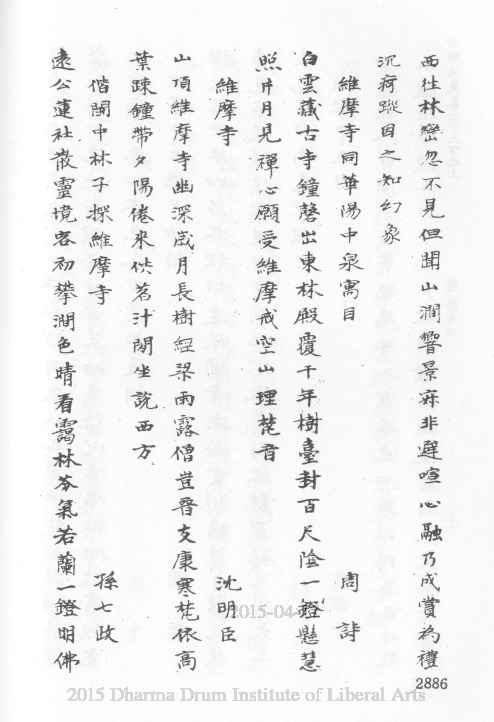 西徃林巒忽不見但聞山澗響景寂非避喧心融乃成賞為禮
沉痾蹤因之知幻象
維摩寺同華陽中泉寓目
周詩
白雲藏古寺鐘磬出東林殿覆千年樹臺封百尺陰一鐙懸慧
照片月見禪心願受維摩戒空山理梵音
維摩寺
沈明臣
山頂維摩寺幽深歲月長樹經梁雨露僧豈晉支康寒梵依高
葉疎鐘帶夕陽倦来供茗汁閒坐說西方
偕閩中林子探維摩寺
孫七政
遠公蓮社散靈境客初攀澗色晴看靄林芬氣若蘭一鐙明佛
2886
2015-04-
2015 Dharma Drum Institute of Liberal Arts